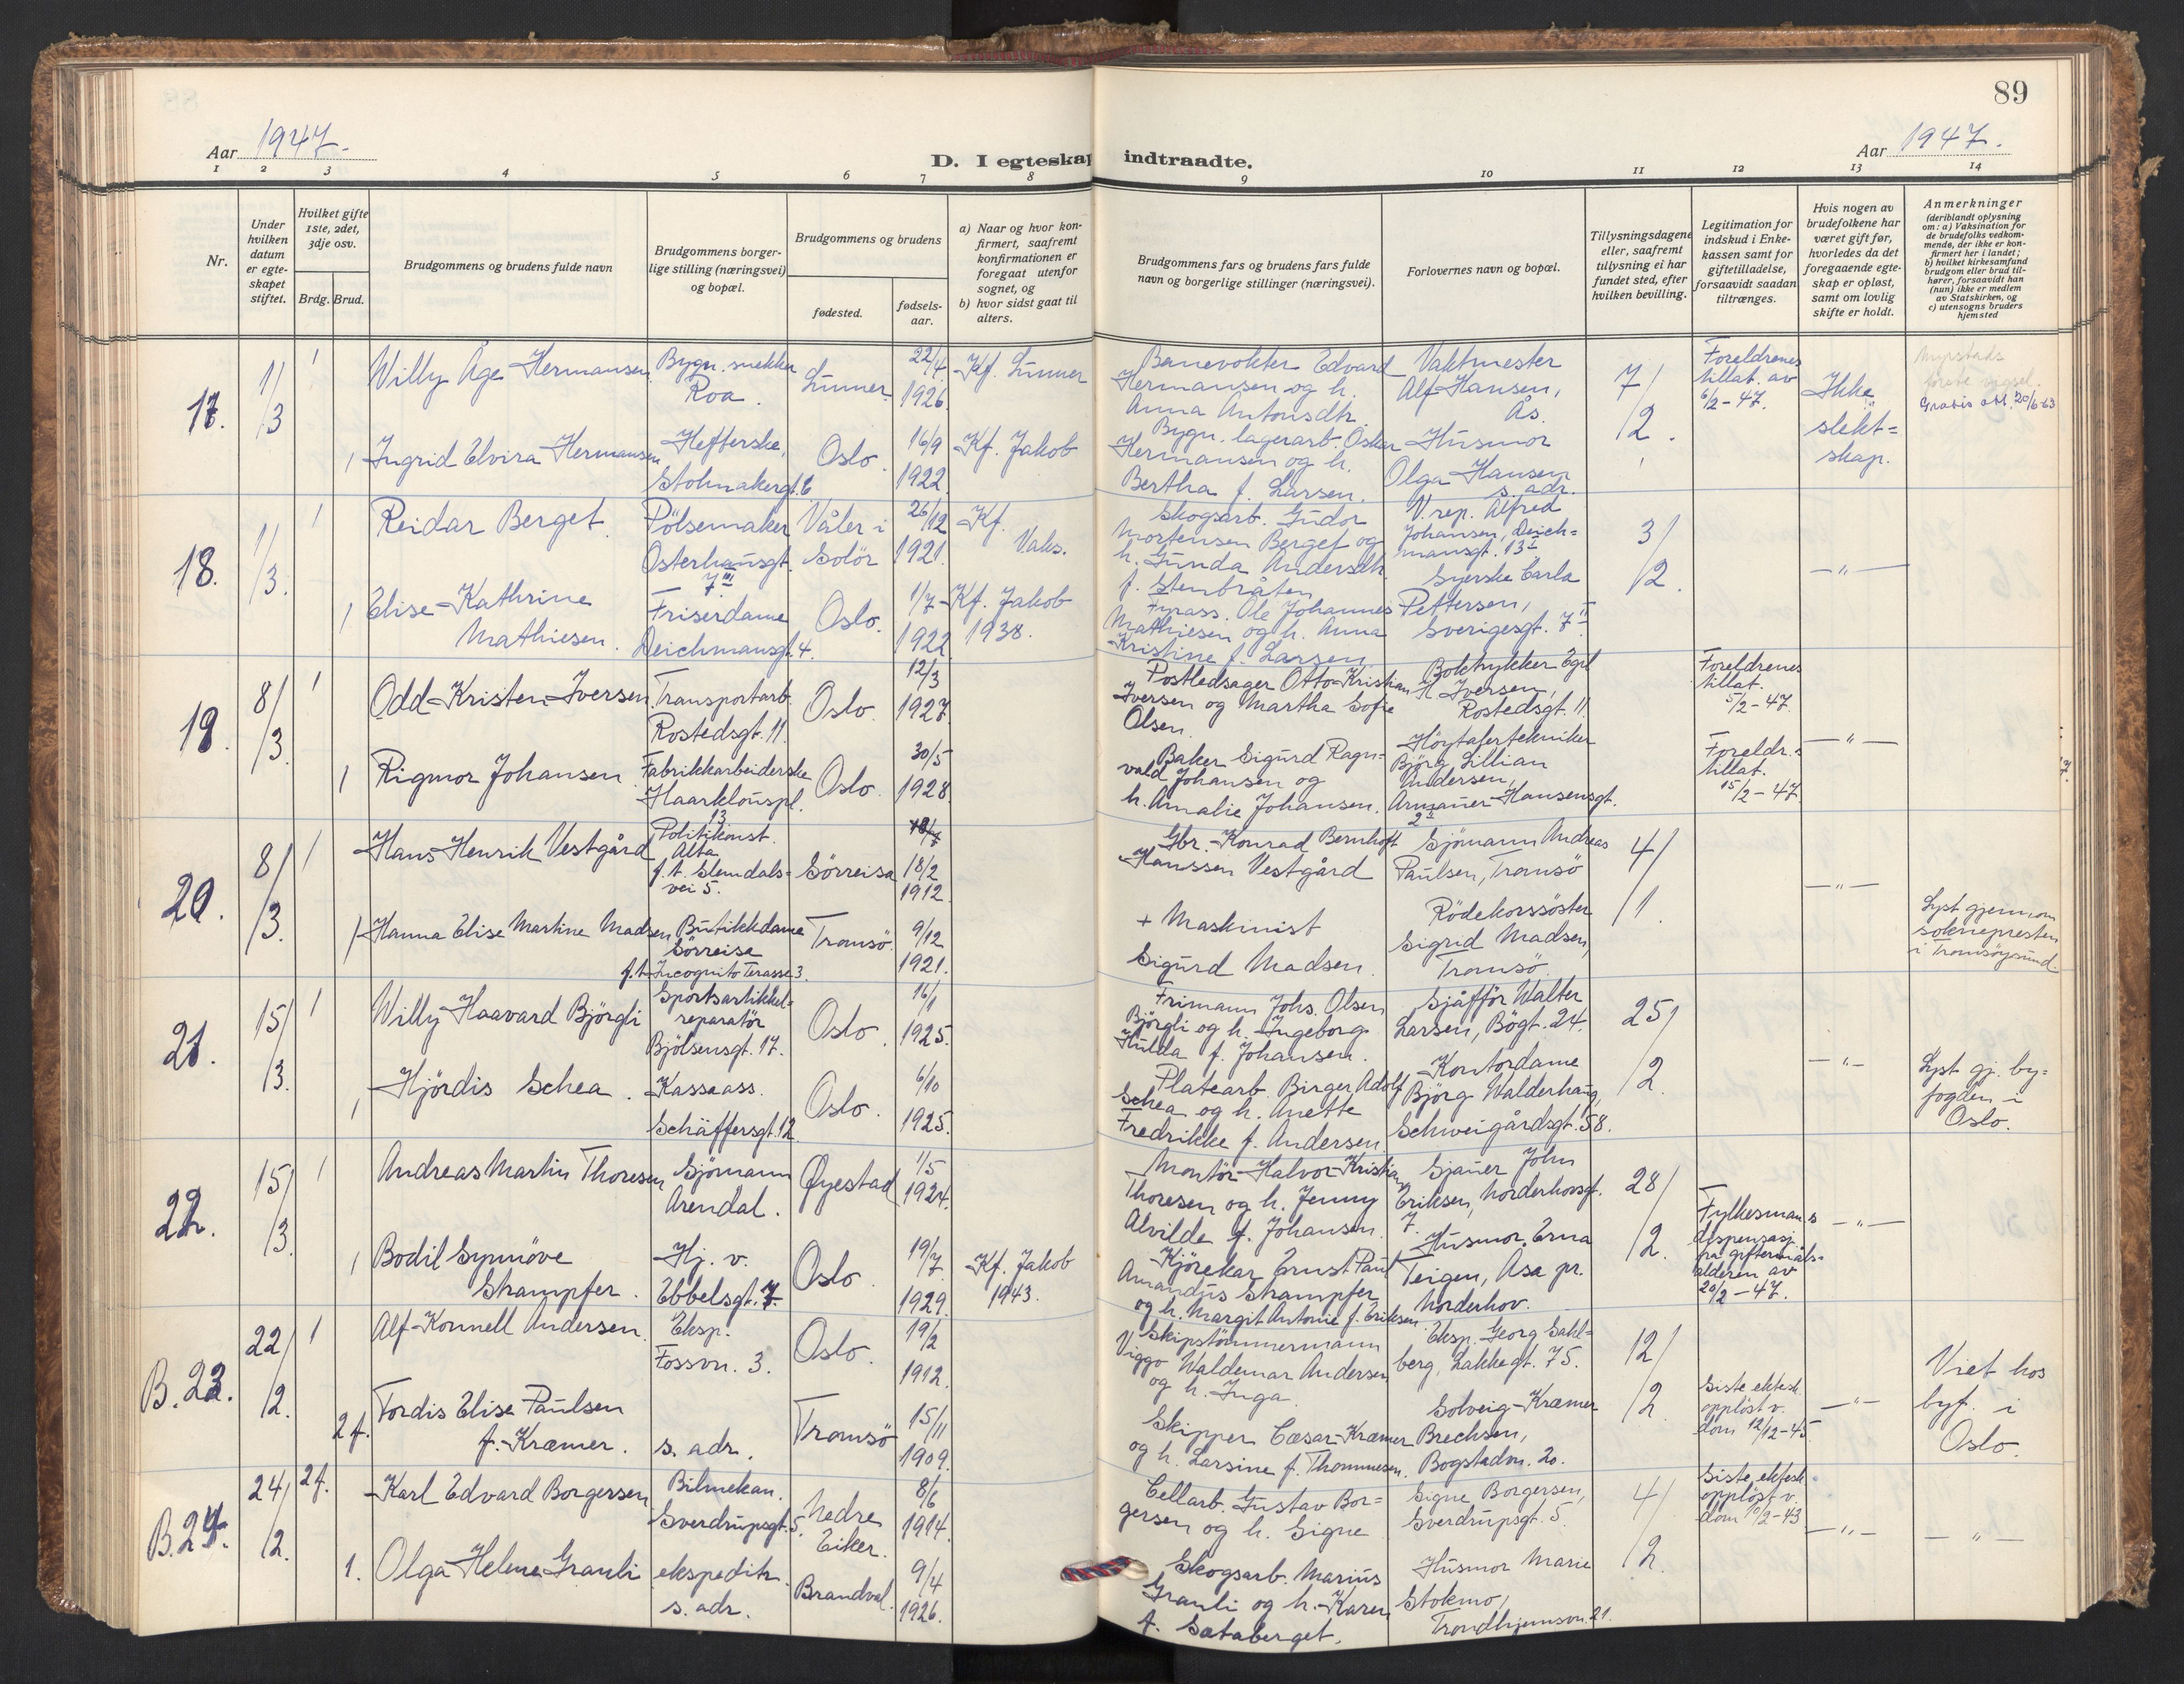 89
Aar 1947.
Aar 1947.
D. I egteskap indtraadte.
1 2 3 4 5 6 7 8 9 10 11 12 13 14
Nr.
Under hvilken datum er egte-skapet stiftet.
Hvilket gifte 1ste, 2det, 3dje osv.
Brdg. Brud.
Brudgommens og brudens fulde navn
Brudgommens borger-lige stilling (næringsvei) og bopæl.
Brudgommens og brudens
fødested.
fødsels-aar.
a) Naar og hvor kon-firmert, saafremt konfirmationen er foregaat utenfor sognet, og
b) hvor sidst gaat til alters.
Brudgommens fars og brudens fars fulde navn og borgerlige stillinger (næringsvei).
Forlovernes navn og bopæl.
Tillysningsdagene eller, saafremt tillysning ei har fundet sted, efter hvilken bevilling.
Legitimation for indskud i Enke-kassen samt for giftetilladelse, forsaavidt saadan tiltrænges.
Hvis nogen av brudefolkene har været gift før, hvorledes da det foregaaende egte-skap er opløst, samt om lovlig skifte er holdt.
Anmerkninger
(deriblandt oplysning om: a) Vaksination for de brudefolks vedkom-mende, der ikke er kon-firmert her i landet; b) hvilket kirkesamfund brudgom eller brud til-hører, forsaavidt han (hun) ikke er medlem av Statskirken, og c) utensogns bruders hjemsted
17. 1/3 1
Willy Åge Hermansen
Bygn. snekker
Roa.
Lunner
22/4 1926.
Kf. Lunner
Banevokter Edvard
Hermansen og h.
Anna Antonsdtr.
Vaktmester
Alf Hansen,
Ås.
7/2.
Foreldrenes
tillat. av
6/2-47.
Ikke
slekt=
skap.
20/6-63
1 Ingrid Elvira Hermansen
Hefterske,
Oslo.
16/9 1922.
Kf. Jakob
Bygn. lagerarb. Oskar
Hermansen og h.
Bertha f. Larsen.
Husmor
Olga Hansen
s. adr.
18. 1/3. 1
Reidar Berget.
Pölsemaker
Osterhausgt.
7 III
Våler i
Solör
26/12 1921.
Kf.
Vaks.
Skogsarb. Gudor
Mortensen Berget og
h. Gunda Andersdtr.
f. Stenbråten
V.rep. Alfred
Johansen, Deich=
mansgt. 13
3/2.
—"—
1 Elise Kathrine
Mathiesen.
Friserdame
Deichmansgt. 4.
Oslo.
1/7 1922
Kf. Jakob
1938.
Fyrass. Ole Johannes
Mathiesen og h. Anna
Kristine f. Larsen
Syerske Carla
Pettersen,
Sverigesgt. 7 II
19. 8/3. 1
Odd Kristen Iversen
Transportarb.
Rostedsgt. 11.
Oslo.
12/3 1927.
Postledsager Otto Kristian
Iversen og Martha Sofie
Olsen.
Boktrykker Egil
H. Iversen,
Rostedsgt. 11.
Foreldrenes
tillat.
5/2-47.
—"—
1 Rigmor Johansen
Fabrikkarbeiderske
Haarklouspl.
13
Oslo.
30/5 1928.
Baker Sigurd Ragn=
vald Johansen og
h. Amalie Johansen.
Høytalertekniker
Bjørg Lillian
Andersen,
Armauer Hansensgt.
2
Foreldr.s
tillat.
15/2-47.
20. 8/3. 1
Hans Henrik Vestgård
Politikonst.
Alta
f.t. Slemdals=
vei 5.
Sörreisa
18/2 1912.
Gbr. Konrad Bernhoft
Hanssen Vestgård
Sjömann Andreas
Paulsen, Tromsö
4/1.
—"—
1 Hanna Elise Martine Madsen
Butikkdame
Sörreise
f.t. Incognito Terasse 3.
Tromsö.
9/12 1921.
+ Maskinist
Sigurd Madsen.
Rödekorssöster
Sigrid Madsen,
Tromsö.
Lyst gjennom
soknepresten
i Tromsöysund.
21. 15/3. 1
Willy Haavard Björgli
Sportsartikkel=
reparatör
Bjölsensgt. 17.
Oslo.
16/1 1925.
Frimann Johs. Olsen
Björgli og h. Ingeborg
Hulda f. Johansen.
Sjåfför Walter
Larsen, Bögt. 24.
25/2.
—"—
Lyst gj. by=
fogden i
Oslo.
1 Hjördis Schea.
Kasseass.
Schäffersgt. 12.
Oslo.
6/10 1925.
Platearb. Birger Adolf
Schea og h. Anette
Fredrikke f. Andersen.
Kontordame
Björg Walderhaug,
Schweigårdsgt. 58.
22. 15/3. 1
Andreas Martin Thoresen
Sjömann
Arendal.
Øyestad
1/5 1924.
Montör Halvor Kristian
Thoresen og h. Jenny
Alvilde f. Johansen.
Sjauer John
Eriksen, Norderhovsgt.
7.
28/2.
Fylkesmanns
dispensasj.
fra giftermåls=
alderen av
20/2-47.
—"—
1 Bodil Synnöve
Strampfer.
Hj. v.
Ebbelsgt. 7.
Oslo.
19/7 1929.
Kf. Jakob
1943.
Kjörekar Ernst Paul
Amandus Strampfer
og h. Margit Antonie f. Eriksen
Husmor Erna
Teigen, Åsa pr.
Norderhov.
B. 23. 22/2. 1
Alf Konnell Andersen.
Eksp.
Fossvn. 3.
Oslo.
19/2 1912.
Skipstömmermann
Viggo Waldemar Andersen
og h. Inga.
Eksp. Georg Sahl=
berg, Lakkegt. 75.
12/2
Siste ektesk.
opplöst v.
dom 12/12-45
—"—
Viet hos
byf. i
Oslo.
2f. Tordis Elise Paulsen
f. Kræmer.
s. adr.
Tromsö
15/11 1909.
Skipper Cæsar Kræmer
og h. Larsine f. Thommesen.
Solveig Kræmer
Brechsen,
Bogstadvn. 20.
B. 24. 24/2. 2f.
Karl Edvard Borgersen
Bilmekan.
Sverdrupsgt. 5.
Nedre
Eiker.
8/6 1914.
Cellarb. Gustav Bor=
gersen og h. Signe
Signe Borgersen,
Sverdrupsgt. 5.
4/2.
Siste ektesk.
opplöst v.
dom 10/2-43
—"—
—"—
1. Olga Helene Granli
ekspeditr.
s. adr.
Brandval.
9/4 1926.
Skogsarb. Marius
Granli og h. Karen
f. Sætaberget.
Husmor Marie
Stokmo,
Trondhjemsvn. 21.